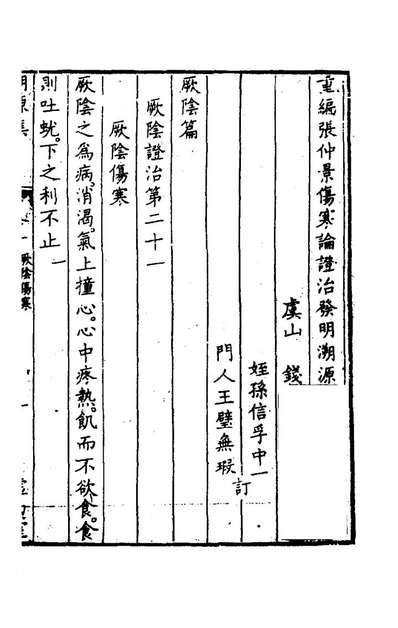 重編張仲景傷寒論證治發明溯源
虞山錢
姪孫信孚中一
門人王璧無瑕
訂
厥陰篇
厥陰證治第二十一
厥陰傷寒
厥陰之為病。消渴。氣上撞心。心中疼熱。飢而不欲食。食
則吐蛔。下之利不止一
厥陰傷寒